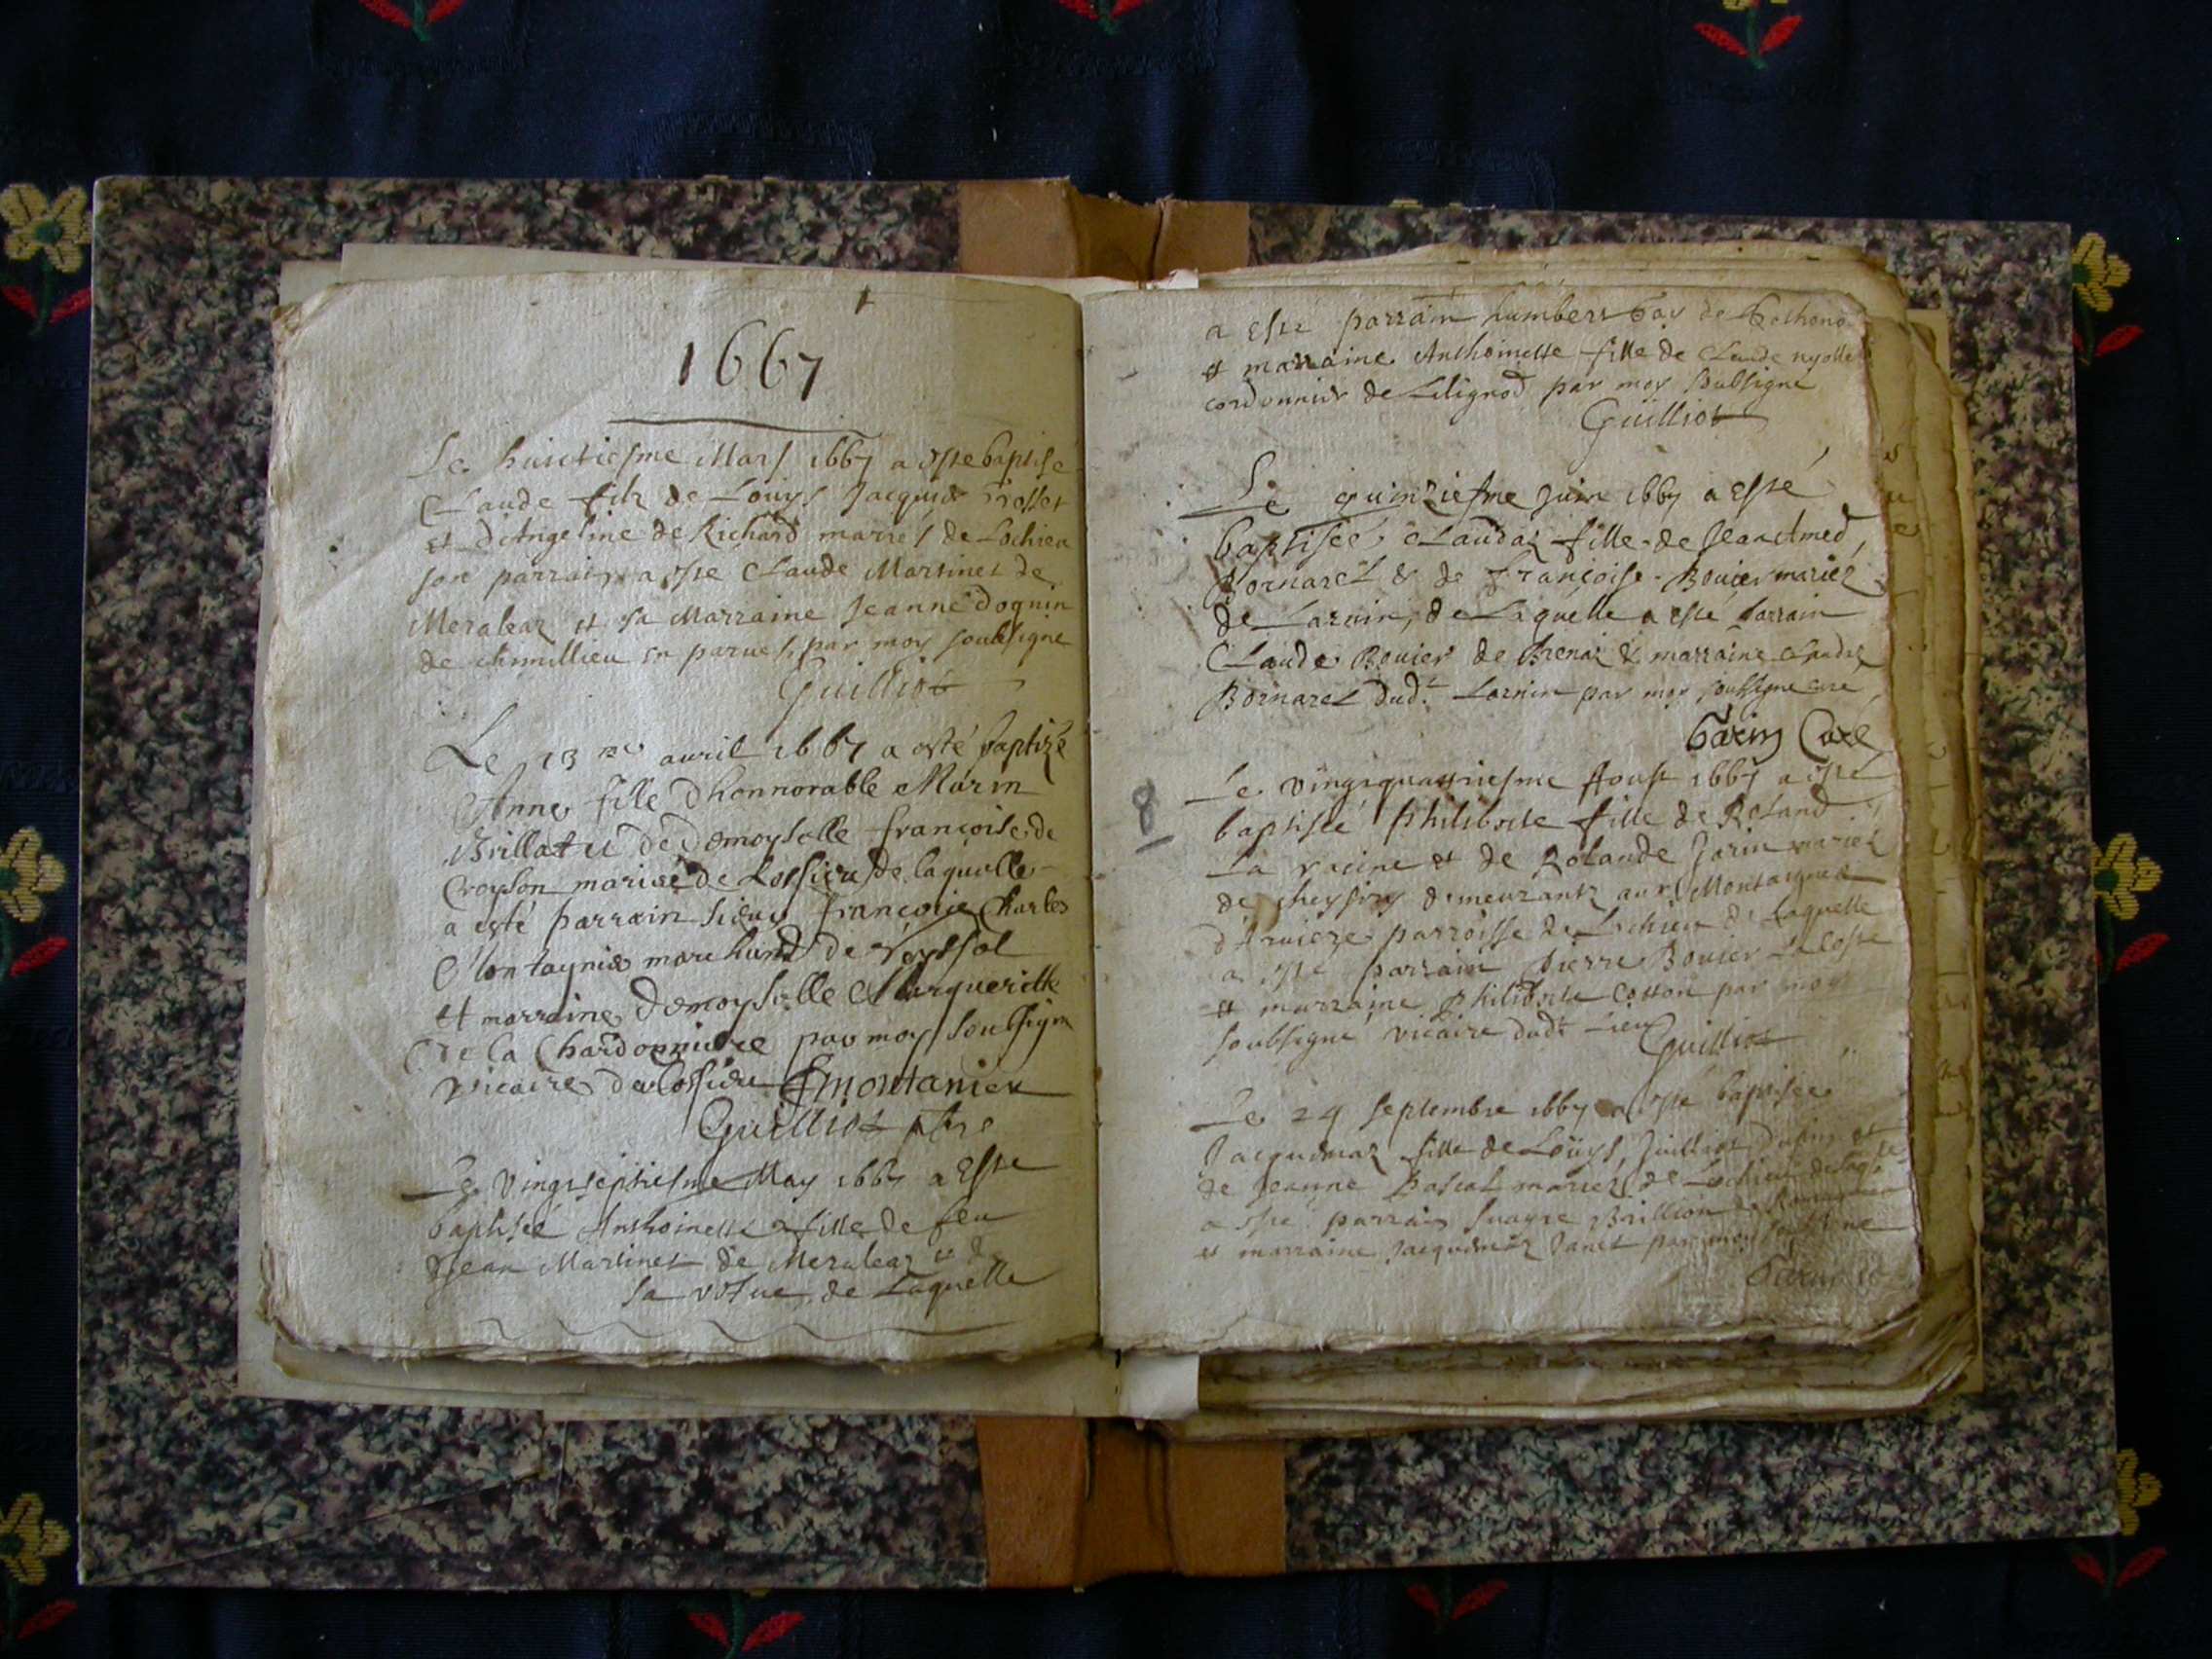 1667
Le huictiesme Mars 1667 a esté baptisé
Claude filz de Louys Jacquier
et d'Angeline de Richard mariés de Lochieu
son parrain a esté Claude Martinet de
Meraleaz et sa Marraine Jeanne Doguin
de Chemillieu en par moy soubsigne
Guilliot
Le 13 me avril 1667 a esté baptizé
Anne fille d'honnorable Marin
Brillat et de Demoyselle françoise de
Croyson mariés de Lossieu de laquelle
a esté parrain sieur françois Charles
Montagnier marchand de Seyssel
et marraine Demoyselle Marguerite
de la Chardonniere par moy soubsigne
vicaire de Lossieu fmontanier
Guilliot ptre
Le vingtseptiesme May 1667 a esté
baptiséé Anthoinette fille de feu
Jean Martinet de Meraleaz et de
sa vefue de Laquelle
a esté parrain humbert Gay de
et marraine Anthoinette fille de Claude
cordonnier de Lilignod par moy soubsigne
Guilliot
Le quinziesme Juin 1667 a esté
baptiséé Claudaz fille de Jean Amed
Bornarel & de françoise Bouier mariez
de Larnin, de Laquelle a esté parrain
Claude Bouier de Brenaz & marraine Claudaz
Bornarel dud.t Larnin par moy soubsigne curé
Garin Curé
8
Le vingtquattriesme Aoust 1667 a esté
baptiséé philiberte fille de Roland
La racine et de Rolande Jarin mariez
de demeurantz aux Montagnes
d'Aruiere parroisse de Lochieu de Laquelle
a esté parrain pierre Bouier
et marraine philiberte Cotton par moy
soubsigné vicaire dudt Lieu Guilliot
Le 24 septembre 1667 a esté baptisee
Jacquemaz fille de Louys Juilliot et
de Jeanne Pascal mariez de Lochieu
a esté parrain Brillion de
et marraine Jacquemaz Janet par moy soubsigne